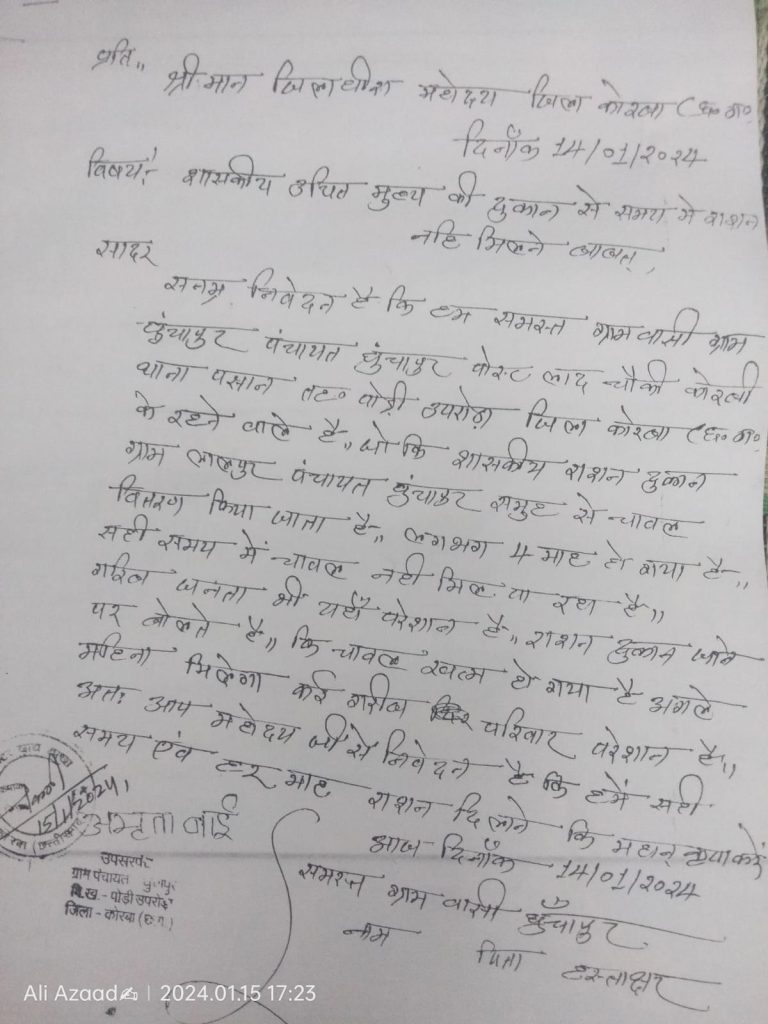 प्रति,,
श्रीमान जिलाधीश महोदय जिला कोरबा (छ०ग०
दिनाँक 14/01/2024
विषयः शासकीय उचित मुल्य की दुकान से समय मे राशन
नहि मिलने बाबत्,
सादर
सनम्र निवेदन है कि हम समस्त ग्रामवासी ग्राम
घुंचापुर पंचायत घुंचापुर पोस्ट लाद चौकी कोरबी
थाना पसान तह० पोड़ी उपरोड़ा जिला कोरबा (छ०ग०
के रहने वाले है,, जो कि शासकीय राशन दुकान
ग्राम लालपुर पंचायत घुंचापुर समुह से चावल
वितरण किया जाता है,, लगभग 4 माह हो गया है,,
सही समय में चावल नही मिल पा रहा है,,
गरिब जनता भी यहाँ परेशान है,, राशन दुकान जाने
पर बोलते है,, कि चावल खत्म हो गया है अगले
महिना मिलेगा कई गरीब परिवार परेशान है,,
अतः आप महोदय जी से निवेदन है कि हमें सही
समय एंव हर माह राशन दिलाने कि महान कृपा करें
आज दिनाँक 14/01/2024
समस्त ग्राम वासी घुँचापुर
नाम पिता हस्ताक्षर
15/1/2024
अमृता बाई
उपसरपंच
ग्राम पंचायत
वि.ख. - पोड़ी उपरोड़ा
जिला - कोरबा (छ.ग.)
Ali Azaad✍ | 2024.01.15 17:23